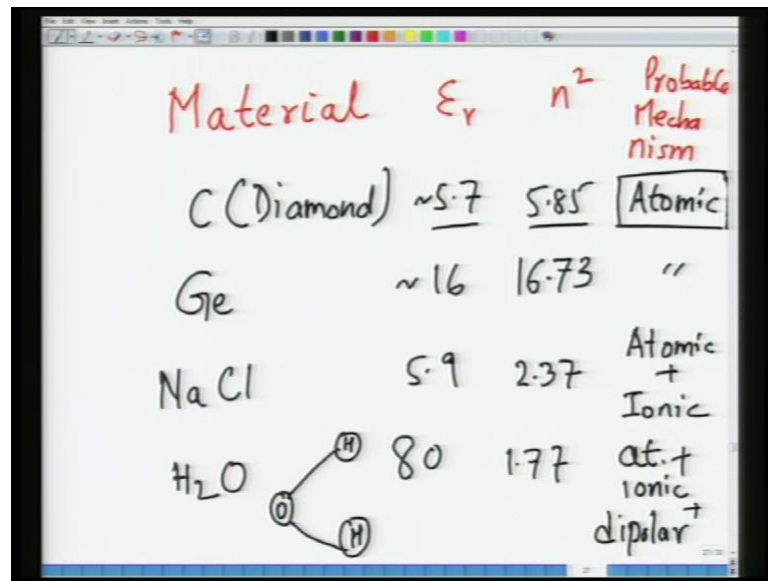 File Edit View Insert Actions Tools Help
Material εr n² Probable Mechanism
C (Diamond) ~5.7 5.85 Atomic
Ge ~16 16.73 〃
NaCl 5.9 2.37 Atomic + Ionic
H₂O O H H 80 1.77 at. + ionic + dipolar